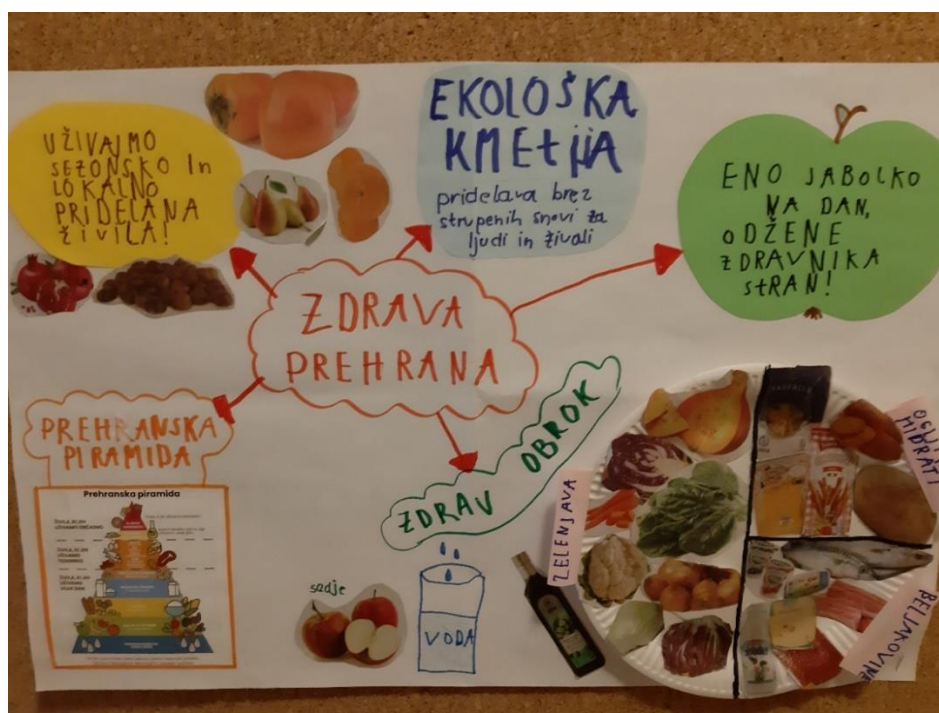 UŽIVAJMO
SEZONSKO In
LOKALNO
PRIDELANA
ŽIVILA!
EKOLOŠKA
KMEtIJA
pridelava brez
strupenih snovi za
ljudi in živali
ENO JABOLKO
NA DAN,
oDŽENE
ZDRAVNIKA
stRAN!
ZDRAVA
PREHRANA
PREHRANSKA
PIRAMIDA
Prehranska piramida
ZDRAV OBROK
sadje
VODA
ZELENJAVA
HIDRATI
BELJAKOVINE